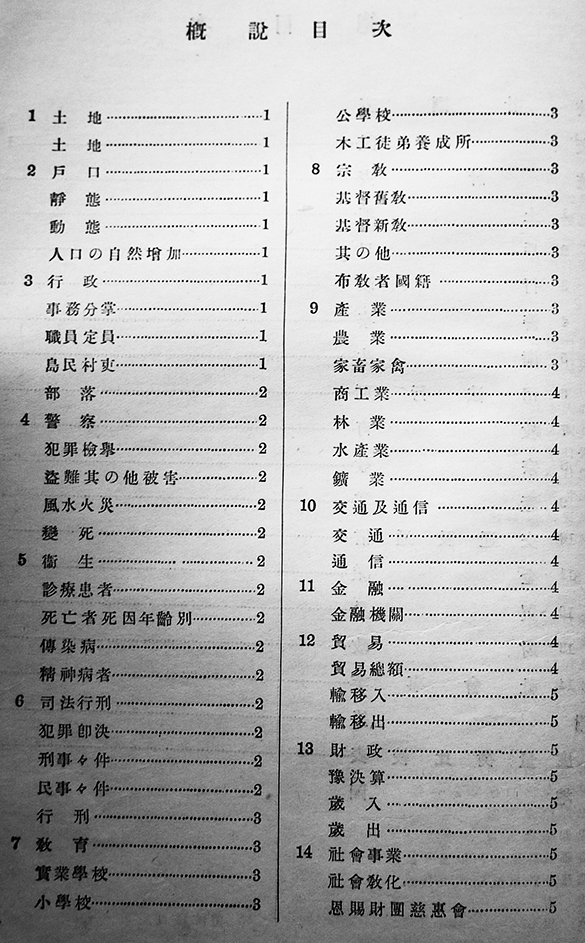 概說目次
1 土地……1
土地……1
2 戶口……1
靜態……1
動態……1
人口の自然增加……1
3 行政……1
事務分掌……1
職員定員……1
島民村吏……1
部落……2
4 警察……2
犯罪檢擧……2
盜難其の他被害……2
風水火災……2
變死……2
5 衞生……2
診療患者……2
死亡者死因年齡別……2
傳染病……2
精神病者……2
6 司法行刑……2
犯罪卽決……2
刑事々件……2
民事々件……2
行刑……3
7 敎育……3
實業學校……3
小學校……3
公學校……3
木工徒弟養成所……3
8 宗敎……3
基督舊敎……3
基督新敎……3
其の他……3
布敎者國籍……3
9 產業……3
農業……3
家畜家禽……3
商工業……4
林業……4
水產業……4
鑛業……4
10 交通及通信……4
交通……4
通信……4
11 金融……4
金融機關……4
12 貿易……4
貿易總額……4
輸移入……5
輸移出……5
13 財政……5
豫決算……5
歲入……5
歲出……5
14 社會事業……5
社會敎化……5
恩賜財團慈惠會……5